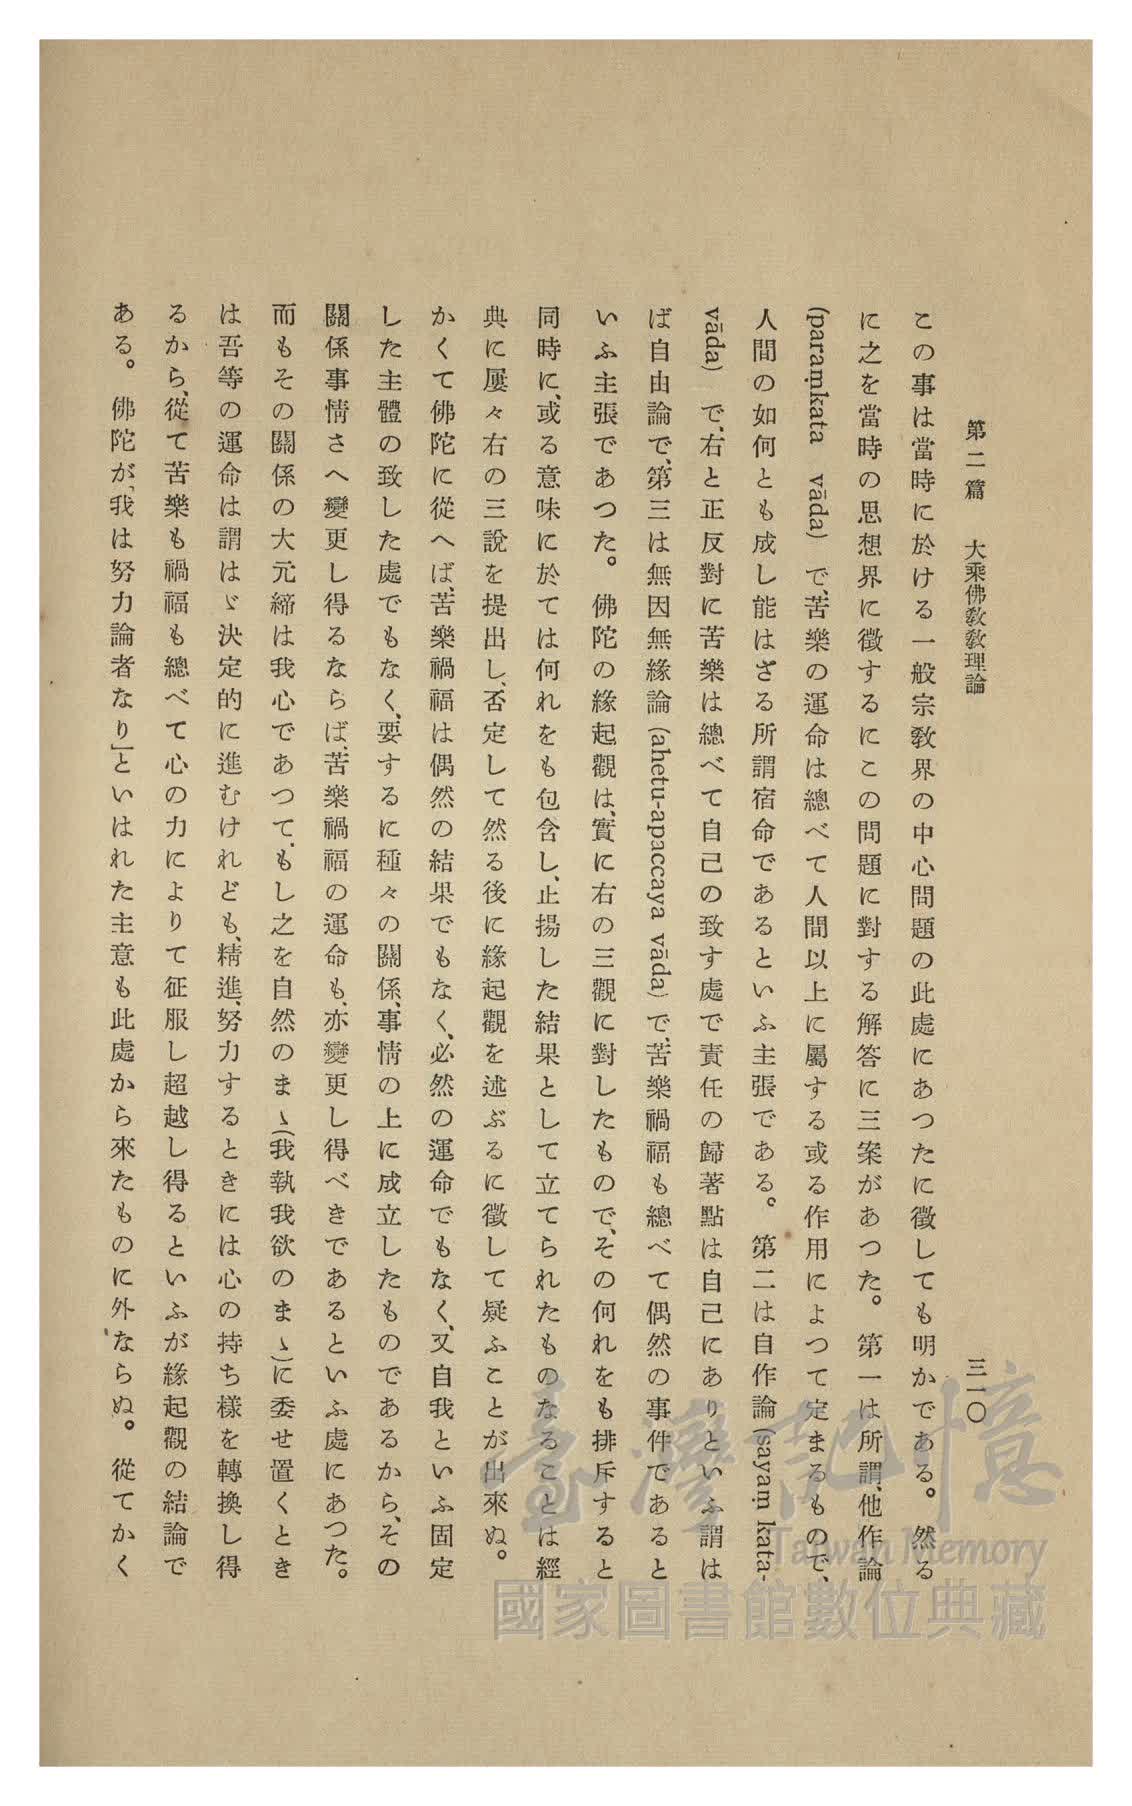 第二篇　大乘佛教教理論　三一〇
この事は當時に於ける一般宗教界の中心問題の此處にあつたに徵しても明かである。然る
に之を當時の思想界に徵するにこの問題に對する解答に三案があつた。第一は所謂、他作論
(paraṃkata vāda) で、苦樂の運命は總べて人間以上に屬する或る作用によつて定まるもので、
人間の如何とも成し能はざる所謂宿命であるといふ主張である。第二は自作論 (sayaṃ kata-
vāda) で、右と正反對に苦樂は總べて自己の致す處で責任の歸著點は自己にありといふ謂は
ば自由論で、第三は無因無緣論 (ahetu-apaccaya vāda) で、苦樂禍福も總べて偶然の事件であると
いふ主張であつた。佛陀の緣起觀は、實に右の三觀に對したもので、その何れをも排斥すると
同時に、或る意味に於ては何れをも包含し、止揚した結果として立てられたものなることは經
典に屢々右の三說を提出し、否定して然る後に緣起觀を述ぶるに徵して疑ふことが出來ぬ。
かくて佛陀に從へば、苦樂禍福は偶然の結果でもなく、必然の運命でもなく、又自我といふ固定
した主體の致した處でもなく、要するに種々の關係、事情の上に成立したものであるから、その
關係事情さへ變更し得るならば、苦樂禍福の運命も、亦變更し得べきであるといふ處にあつた。
而もその關係の大元締は我心であつて、もし之を自然のまゝ(我執我欲のまゝ)に委せ置くとき
は吾等の運命は謂はゞ決定的に進むけれども、精進、努力するときには心の持ち樣を轉換し得
るから、從て苦樂も禍福も總べて心の力によりて征服し超越し得るといふが緣起觀の結論で
ある。佛陀が、「我は努力論者なり」といはれた主意も此處から來たものに外ならぬ。從てかく
臺灣記憶
Taiwan Memory
國家圖書館數位典藏